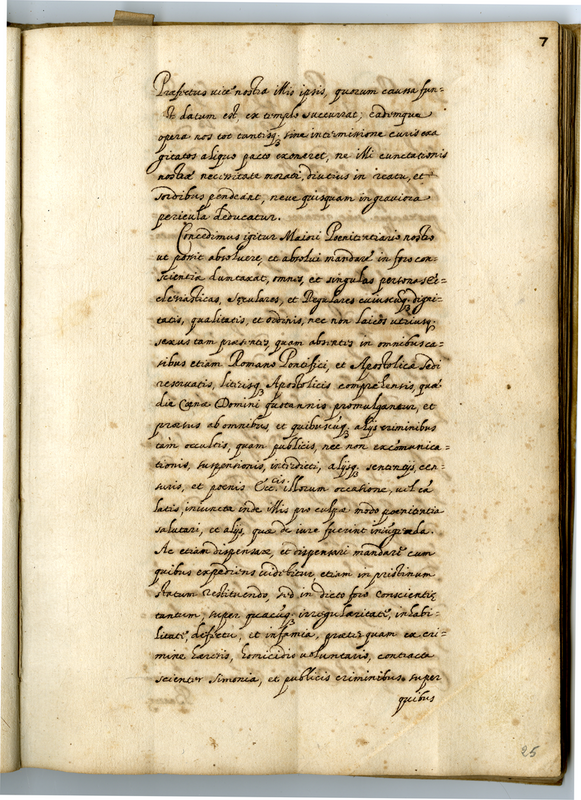 7
Præfectus vice nostra illis ipsis, quorum causa fun-
datum est, ex templo succurrat; eademque
opera nos tot tantisq. sine intermissione curis exa
gitatos aliquo pacto exoneret, ne illi cunctationis
nostræ necessitate morati, diutius in reatu, et
sordibus pendeant, neve quisquam in graviora
pericula deducatur.
Concedimus igitur Maiori Poenitentiario nostro
ut possit absolvere, et absolvi mandare in foro con-
scientiæ duntaxat, omnes, et singulas personas Ec-
clesiasticas, Sęculares, et Regulares cuiuscuq. digni-
tatis, qualitatis, et ordinis, nec non laicos utriusq.
sexus tam præsentes, quam absentes in omnibus ca-
sibus etiam Romano Pontifici, et Apostolicæ Sedi
reservatis, literisq. Apostolicis comprehensis, quæ
die Cœnæ Domini quotannis promulgantur, et
prorsus ab omnibus, et quibuscuq. alijs criminibus
tam occultis, quam publicis, nec non excomunica-
tionis, suspensionis, interdicti, alijsq. sententijs, cen-
suris, et poenis Ecc.cis illorum occasione, vel ca
latis, iniuncta inde illis pro culpæ modo poenitentia
salutari, et alijs, quæ de iure fuerint iniungenda.
Ac etiam dispensare, et dispensari mandare cum
quibus expediens videbitur, etiam in pristinum
statum restituendo, sed in dicto foro conscientiæ
tantum, super quacuq. irregularitate, inhabi-
litate, defectu, et infamia, præterquam ex cri-
mine hæresis, homicidij voluntarij, contracta
scienter simonia, et publicis criminibus super
quibus
25